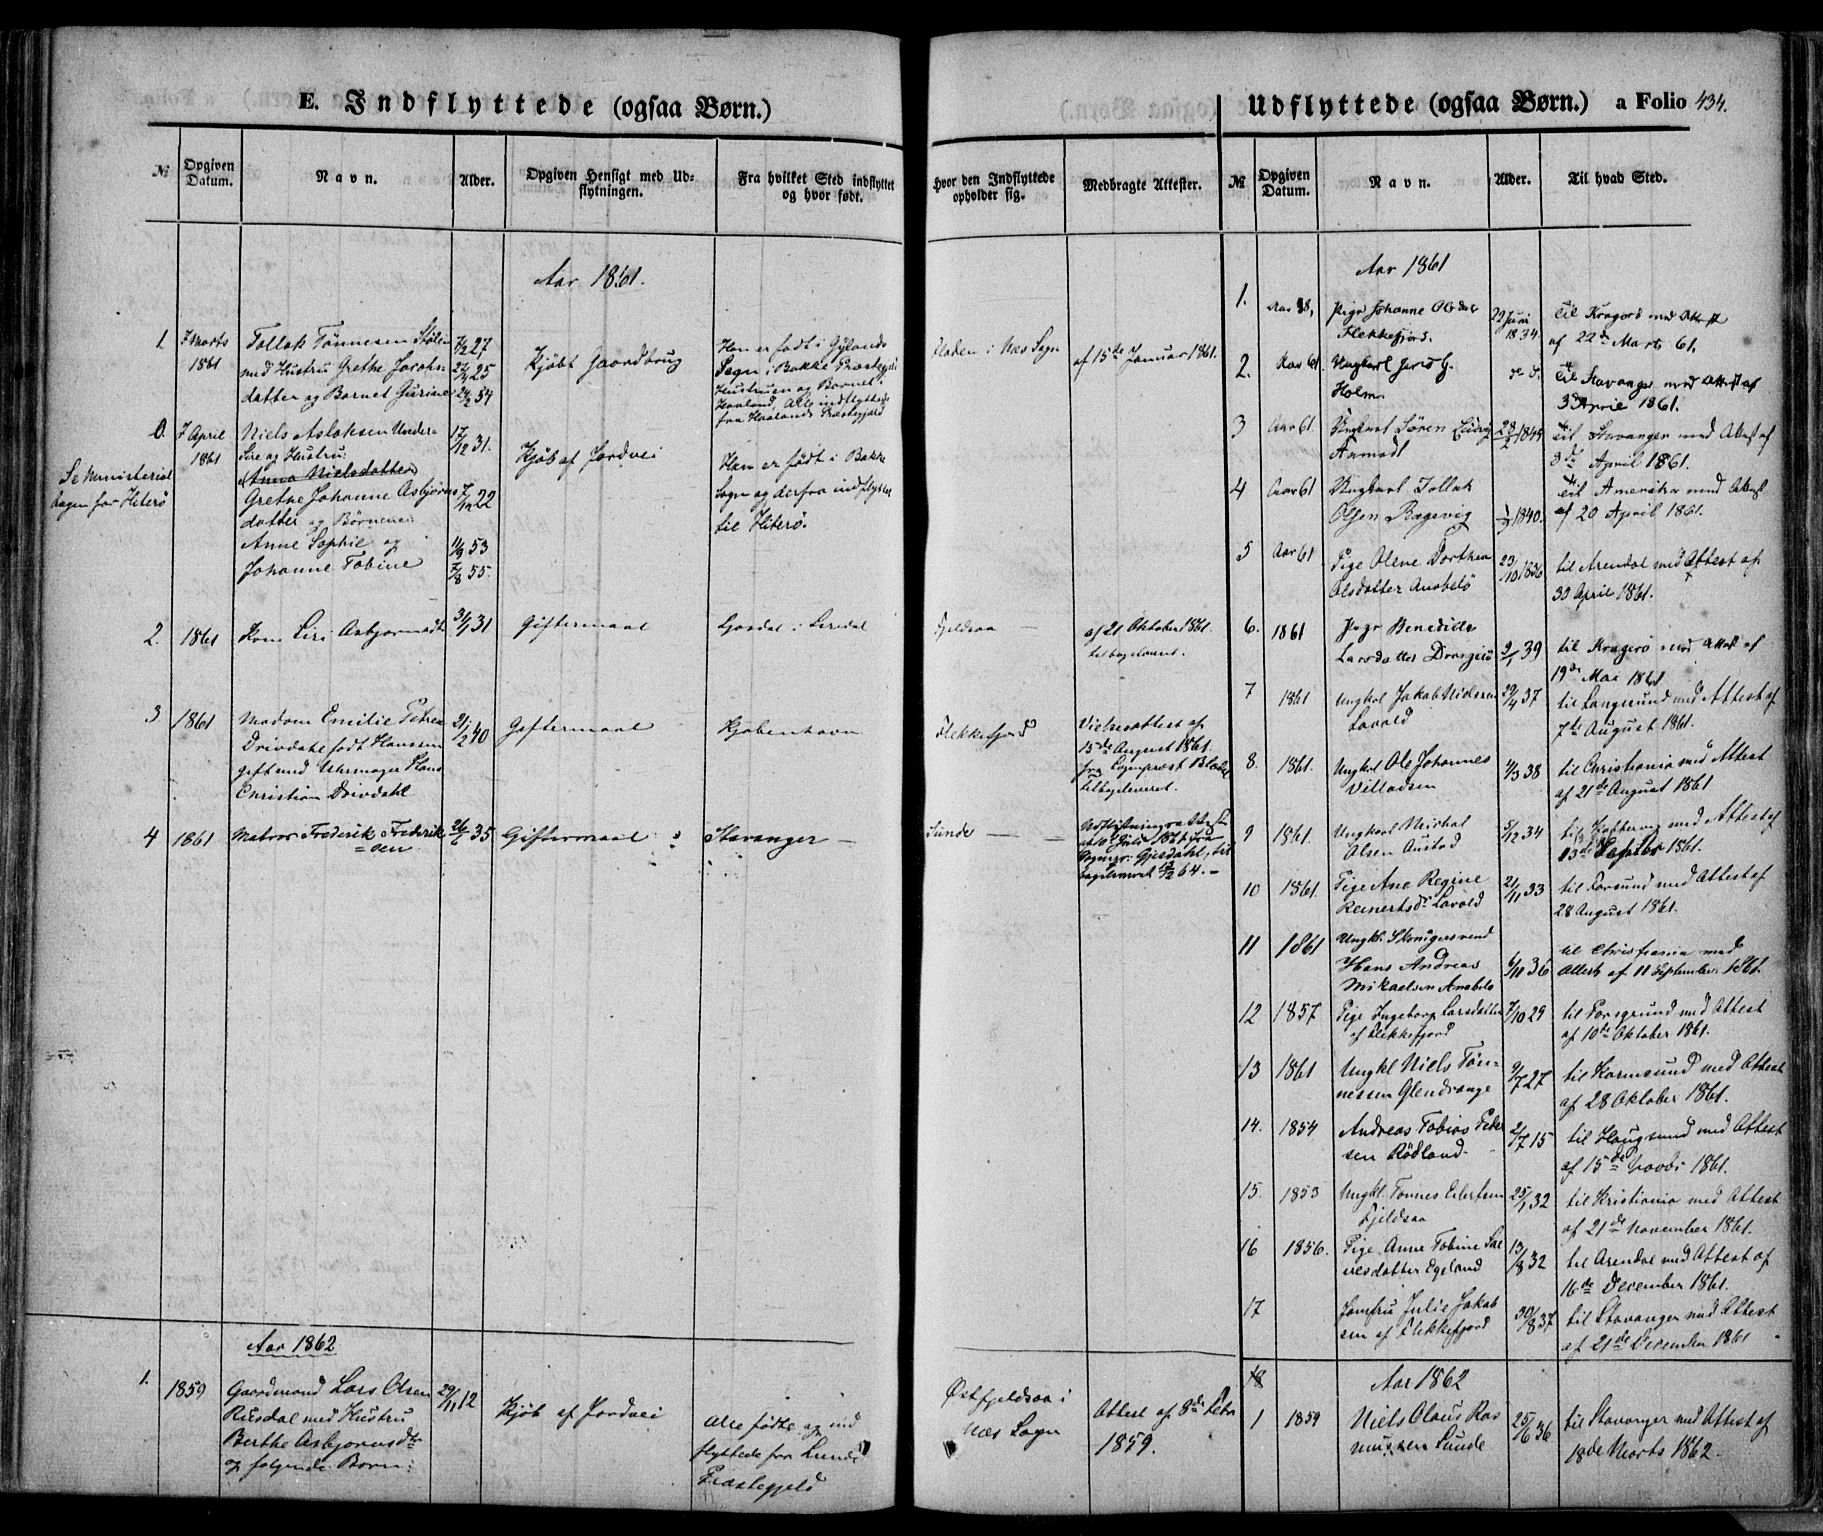 E. Indflyttede (ogsaa Børn.)
№
Opgiven Datum.
Navn.
Alder.
Opgiven Hensigt med Udflytningen.
Fra hvilket Sted indflyttet og hvor født.
Aar 1861.
1.
7 Marts
1861
Tollak Tønnesen
med Hustru Grethe
datter og Barnet Gurine
27
25
54
Kjøbt Gaardbrug
Han er født i Gylands
Sogn i Bakke Præstegj
Hustruen og Barnet i
Haaland, Alle indflyttede
fra Haalands Præstegjæld
0.
7 April
1861
Se Ministerial
bogen for Hiterø
Niels Aslaksen
Sire og Hustru
Anna Nielsdatter
Grethe Johanne Asbjørns
datter og Børnene
Anne Sophie og
Johanne Tobine
17/12 31.
7/12 22
11/9 53
7/8 55.
Kjøb af Jordvei
Han er født i Bakke
Sogn og derfra indflyttet
til Hiterø.
2.
1861
Kone Siri Asbjørnsdtr
31/1 31
Giftermaal
3
1861
Madam Emilie Petrea
Drivdahl født Hanssen
gift med Uhrmager Hans
Christian Drivdahl.
21/2 40
Giftermaal
Kjøbenhavn
4
1861
Matros Frederik Frederik-
sen
35
Giftermaal
Stavanger
Aar 1862
1.
1859
Gaardmand Lars Olsen
Rusdal med Hustru
Berthe Asbjørnsdtr
og følgende Børn:
29/11 12
Kjøb af Jordvei
Alle fødte og ind
flyttede fra Lunde
Præstegjeld
Hvor den Indflyttede opholder sig.
Medbragte Attester.
Floden i Næs Sogn
af 15de Januar 1861.
Fjeldsaa
af 21 Oktober 1861.
tilbageleveret.
Flekkefjord
Vielsesattest af
15de August 1861.
fra Sognepræst
Tilbageleveret.
Sunde
Østfjeldsaa i
Næs Sogn
Attest af 8de Febr
1859.
Udflyttede (ogsaa Børn.) a Folio 434.
№
Opgiven Datum.
Navn.
Alder.
Til hvad Sted.
Aar 1861
1.
Pige Johanne
Flekkefjord.
22 Juni
1834
til Kragerø med Attest
af 22de Marts 61.
2.
Aar 61.
Ungkarl
Holm
til Stavanger med Attest af
3 April 1861.
3
Aar 61.
Ungkarl Søren
1845
til Stavanger med Attest af
3de April 1861.
4
Aar 61
Ungkarl Tollak
Olsen Ragsvig
1840.
til Amerika med Attest
af 20 April 1861.
5
Aar 61
Pige Olene Dorthea
Olsdatter Anabelø
23/10 1836
til Arendal med Attest af
30 April 1861.
6.
1861
Pige Benedikte
Larsdatter
39
til Kragerø med Attest af
19de Mai 1861
7
1861
Ungkal Jakob Nielsen
Lavold
29/4 37
til Langesund med Attest af
7de August 1861.
8.
1861.
Ungkal Ole Johannes
Villadsen
4/3 38
til Christiania med Attest
af 21de August 1861
9
1861.
Ungkarl Michal
Olsen Austad
5/12 34
med Attest af
13de Septbr 1861.
10
1861.
Pige Ane Regine
Reinertsdtr Lavold
21/11 33
til Farsund med Attest af
28 August 1861.
11
1861
Ungk. Skomagersvend
Hans Andreas
Mikaelsen Anabelø
6/11 36
til Christiania med
Attest af 11 September 1861.
12
1857
Pige Ingeborg Larsdatter
af Flekkefjord
7/10 29
til Porsgrund med Attest
af 10de Oktober 1861.
13
1861
Ungkl Niels Tøn-
nessen Glendrange
9/7 27
til Karmsund med Attest
af 28 Oktober 1861.
14.
1854
Andreas Tobias Peder
sen Rødland.
2/7 15
til Haugesund med Attest
af 15de Novbr 1861.
15.
1853
Ungkl. Tønnes Eilertsen
Fjeldsaa
25/1 32
til Kristiania med Attest
af 21de November 1861.
16
1856.
Pige Anne Tobine Sa
resdatter Egeland
13/8 32
til Arendal med Attest af
16de December 1861.
17
Jomfru Julie Jakob
sen af Flekkefjord
30/8 37
til Stavanger med Attest
af 21de December 1861
18
Aar 1862
1
1859
Niels Olaus Ras
mussen Sunde
25/6 36
til Stavanger med Attest af
18de Marts 1862.